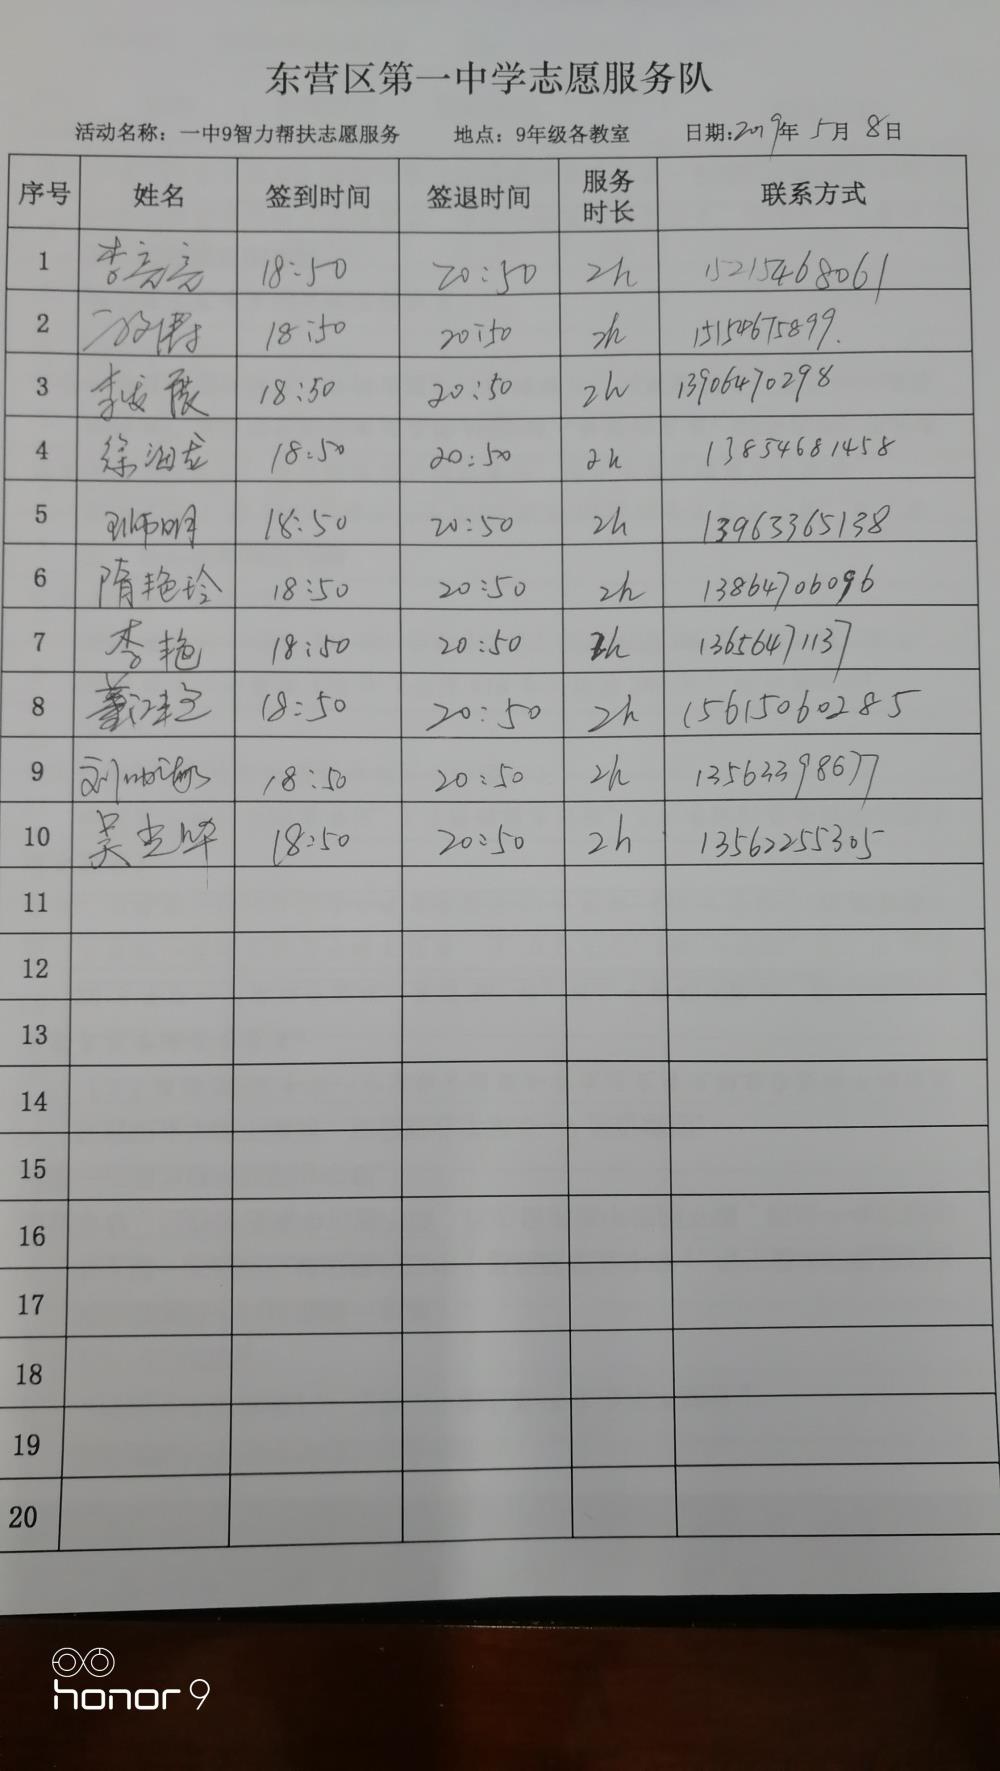 东营区第一中学志愿服务队
活动名称：一中9智力帮扶志愿服务 地点：9年级各教室 日期:2019年 5月 8日
序号 姓名 签到时间 签退时间 服务时长 联系方式
1 李亮亮 18:50 20:50 2h 15215468061
2 18:50 20:50 2h 15154675899.
3 李 18:50 20:50 2h 13906470298
4 徐 18:50 20:50 2h 13854681458
5 18:50 20:50 2h 13963365138
6 隋艳玲 18:50 20:50 2h 13864706096
7 李艳 18:50 20:50 2h 13656471137
8 18:50 20:50 2h 15615060285
9 刘 18:50 20:50 2h 13563398677
10 吴 18:50 20:50 2h 13562255305
11
12
13
14
15
16
17
18
19
20
honor 9